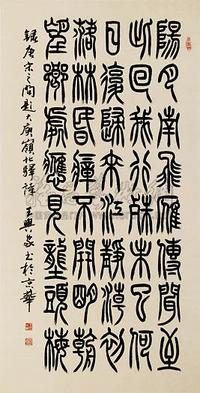 陽月南飛雁傳聞至
此回我行殊未已何
日復歸來江靜潮初
落林昏瘴不開明朝
望鄉處應見隴頭梅
錄唐宋之問題大庾嶺北驛詩 王興家书於京華